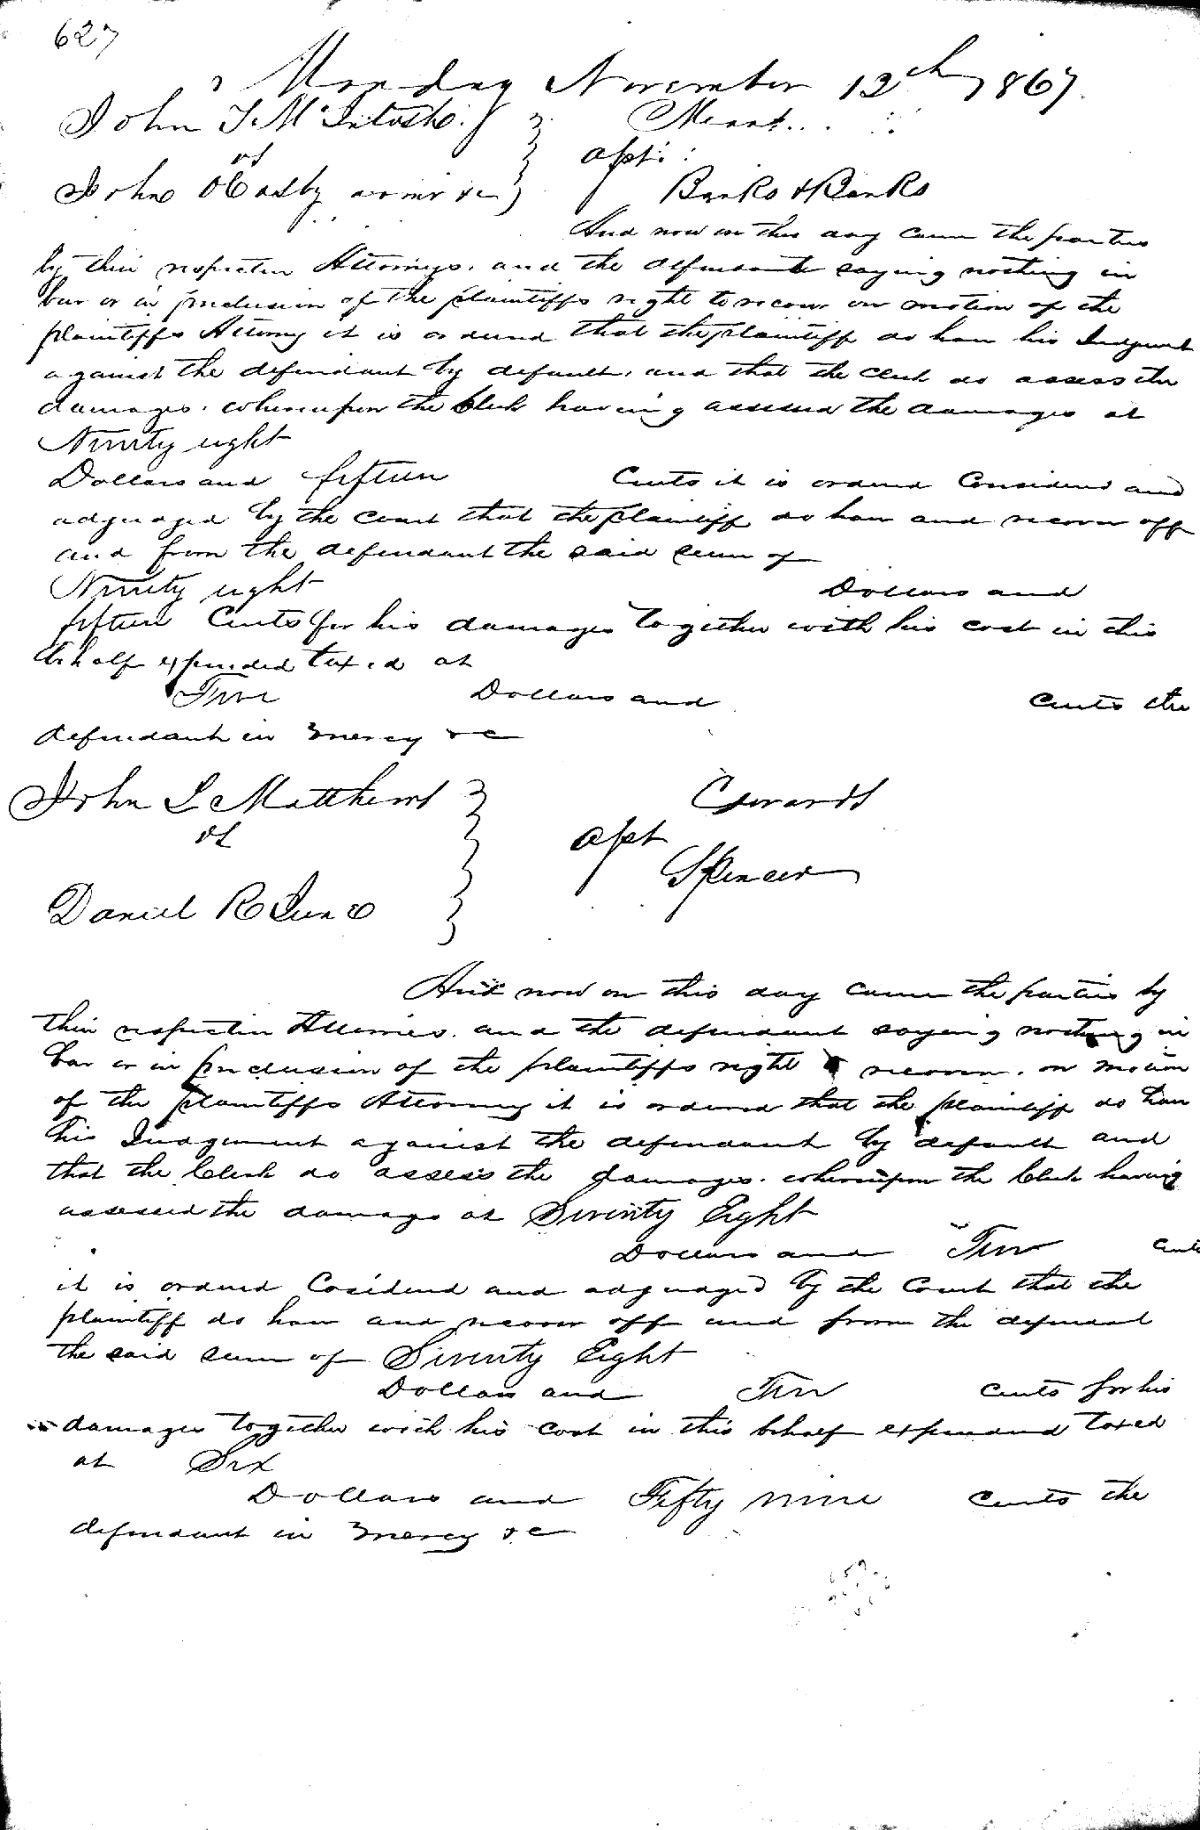 627
Monday November 12th 1867.
John T. McIntosh.
vs
apt
John Oseasby
Banks & Banks
And now on this day came the parties
by their respective Attorneys. and the defendant saying nothing in
bar or in preclusion of the plaintiffs right to recover on motion of the
plaintiffs Attorney it is ordered that the plaintiff do have his Judgment
against the defendant by default, and that the clerk do assess the
damages. whereupon the Clerk having assessed the damages at
Ninety eight
Dollars and fifteen Cents it is ordered Considered and
adjudged by the court that the plaintiff do have and recover off
and from the defendant the said sum of
Ninety eight Dollars and
fifteen Cents for his damages together with his cost in this
behalf expended taxed at
Five Dollars and Cents the
defendant in mercy &c
John L Matthews
vs
apt
Edwards
Spencer
Daniel R
And now on this day came the parties by
their respective Attornies. and the defendant saying nothing in
bar or in preclusion of the plaintiffs right recover. on motion
of the plaintiffs Attorney it is ordered that the plaintiff do have
his Judgement against the defendant by default and
that the Clerk do assess the damages. whereupon the Clerk having
assessed the damage at Seventy Eight
Dollars and Ten Cents
it is ordered Cosidered and adjudged by the Court that the
plaintiff do have and recover off and from the defendant
the said sum of Seventy Eight
Dollars and Ten cents for his
damages together with his cost in this behalf expended taxed
at Six
Dollars and Fifty nine cents the
defendant in mercy &c